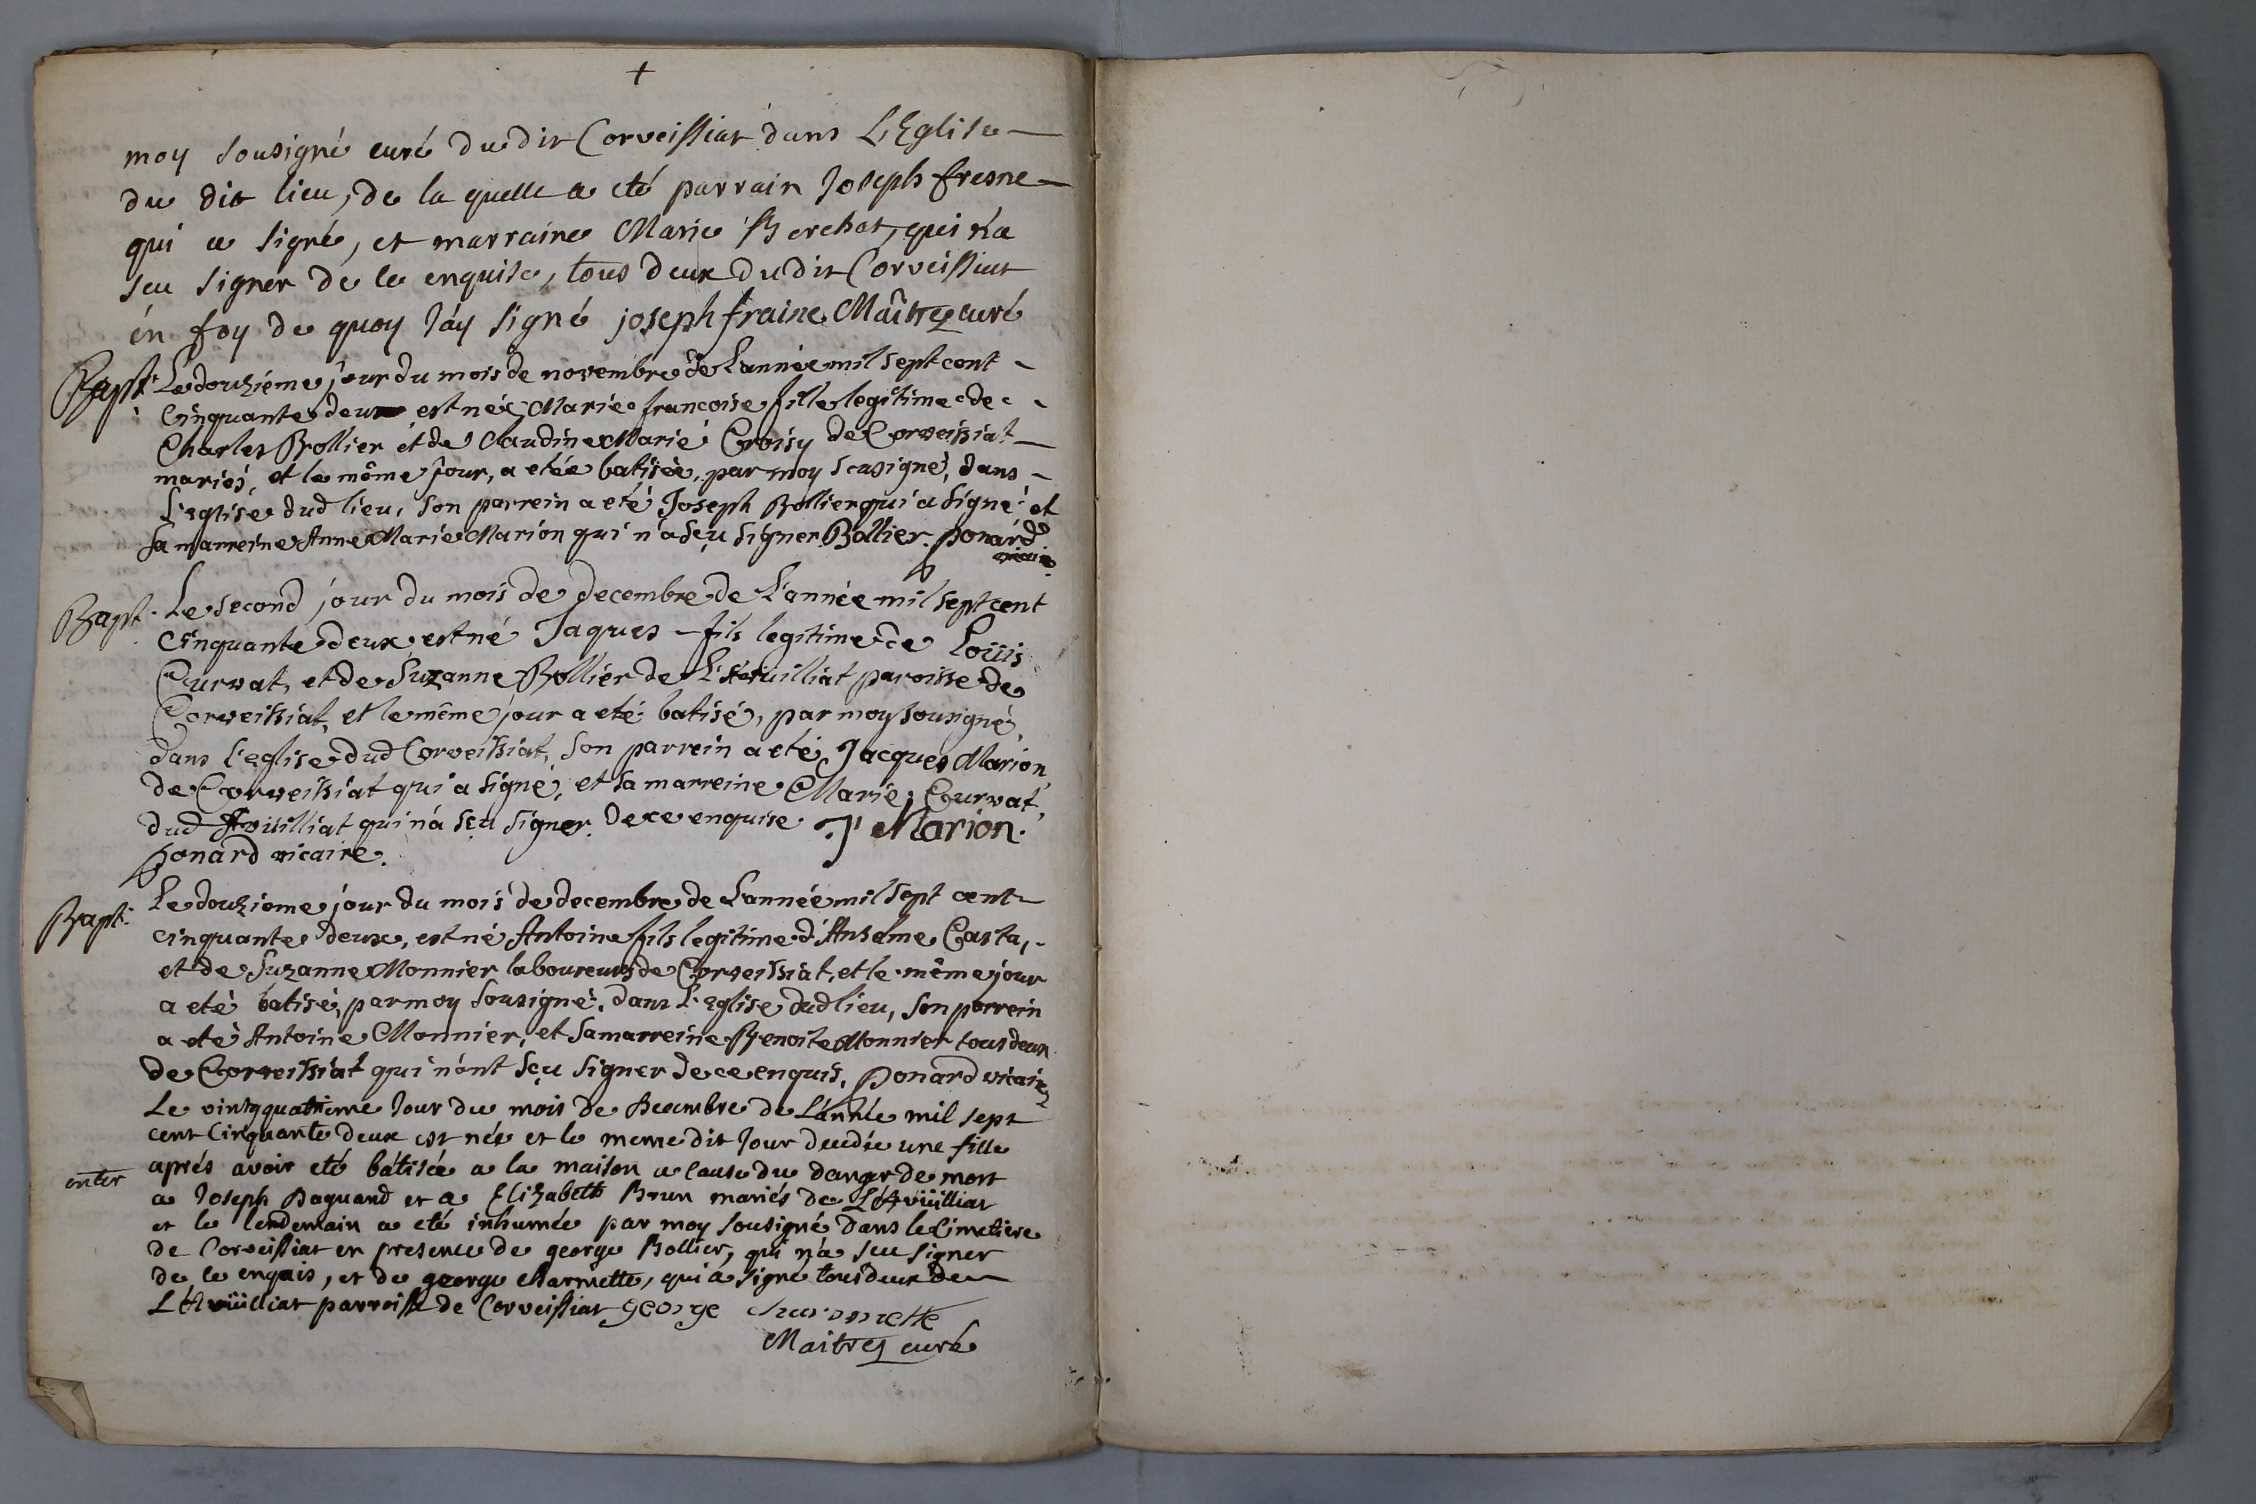 +
moy sousigné curé du dit Corveissiat dans L'Eglise
du dit lieu, de la quelle a eté parrain Joseph fresne
qui a signé, et marraine Marie Berchet, qui n'a
seu signer de ce enquise, tous deux du dit Corveissiat
en foy de quoy J'ay signé joseph fraine Maître curé
Bapt. Le douzième jour du mois de novembre de L'année mil sept cent
Cinquante deux est née Marie francoise fille legitime de
Charles Bollier et de Claudine Marie Croisy de Corveissiat
mariés, et le même jour, a etée batisée, par moy sousigné, dans
l'eglise dud lieu, son parrein a eté Joseph Bollier qui a signé et
sa marreine Anne Marie Marion qui n'a sçu signer Bollier. ponard
vicaire.
Bapt. Le second jour du mois de decembre de L'année mil sept cent
cinquante deux est né Jaques fils legitime de Loüis
Curvat, et de Suzanne Bollier de paroisse de
Corveissiat, et le même jour a eté batisé, par moy sousigné
dans l'eglise dud Corveissiat, son parrein a eté Jacques Marion
de Corveissiat qui a signé, et sa marreine Marie Curvat,
dud qui n'a sçu signer de ce enquise J Marion.
ponard vicaire.
Bapt. Le douzieme jour du mois de decembre de L'année mil sept cent
cinquante deux, est né Antoine fils legitime d'Anselme Casta,
et de Suzanne Monnier laboureurs de Corveissiat, et le même jour
a eté batisé, par moy sousigné, dans L'eglise dud lieu, son parrein
a eté Antoine Monnier, et sa marreine Benoite Monnier tous deux
de Corveissiat qui n'ont sçu signer de ce enquis, ponard vicaire
Le vintquatrieme Jour du mois de Decembre de L'année mil sept
cent Cinquante deux est née et le meme dit Jour decedée une fille
aprés avoir eté batisée a la maison a cause du danger de mort
enter a Joseph Paguand et a Elizabeth Brun mariés de
et le lendemain a eté inhumée par moy sousigné dans le Cimetiere
de Corveissiat en presence de george Bollier, qui n'a seu signer
de ce enquis, et de george charmette, qui a signé tous deux de
parroisse de Corveissiat george charmette
Maitre curé